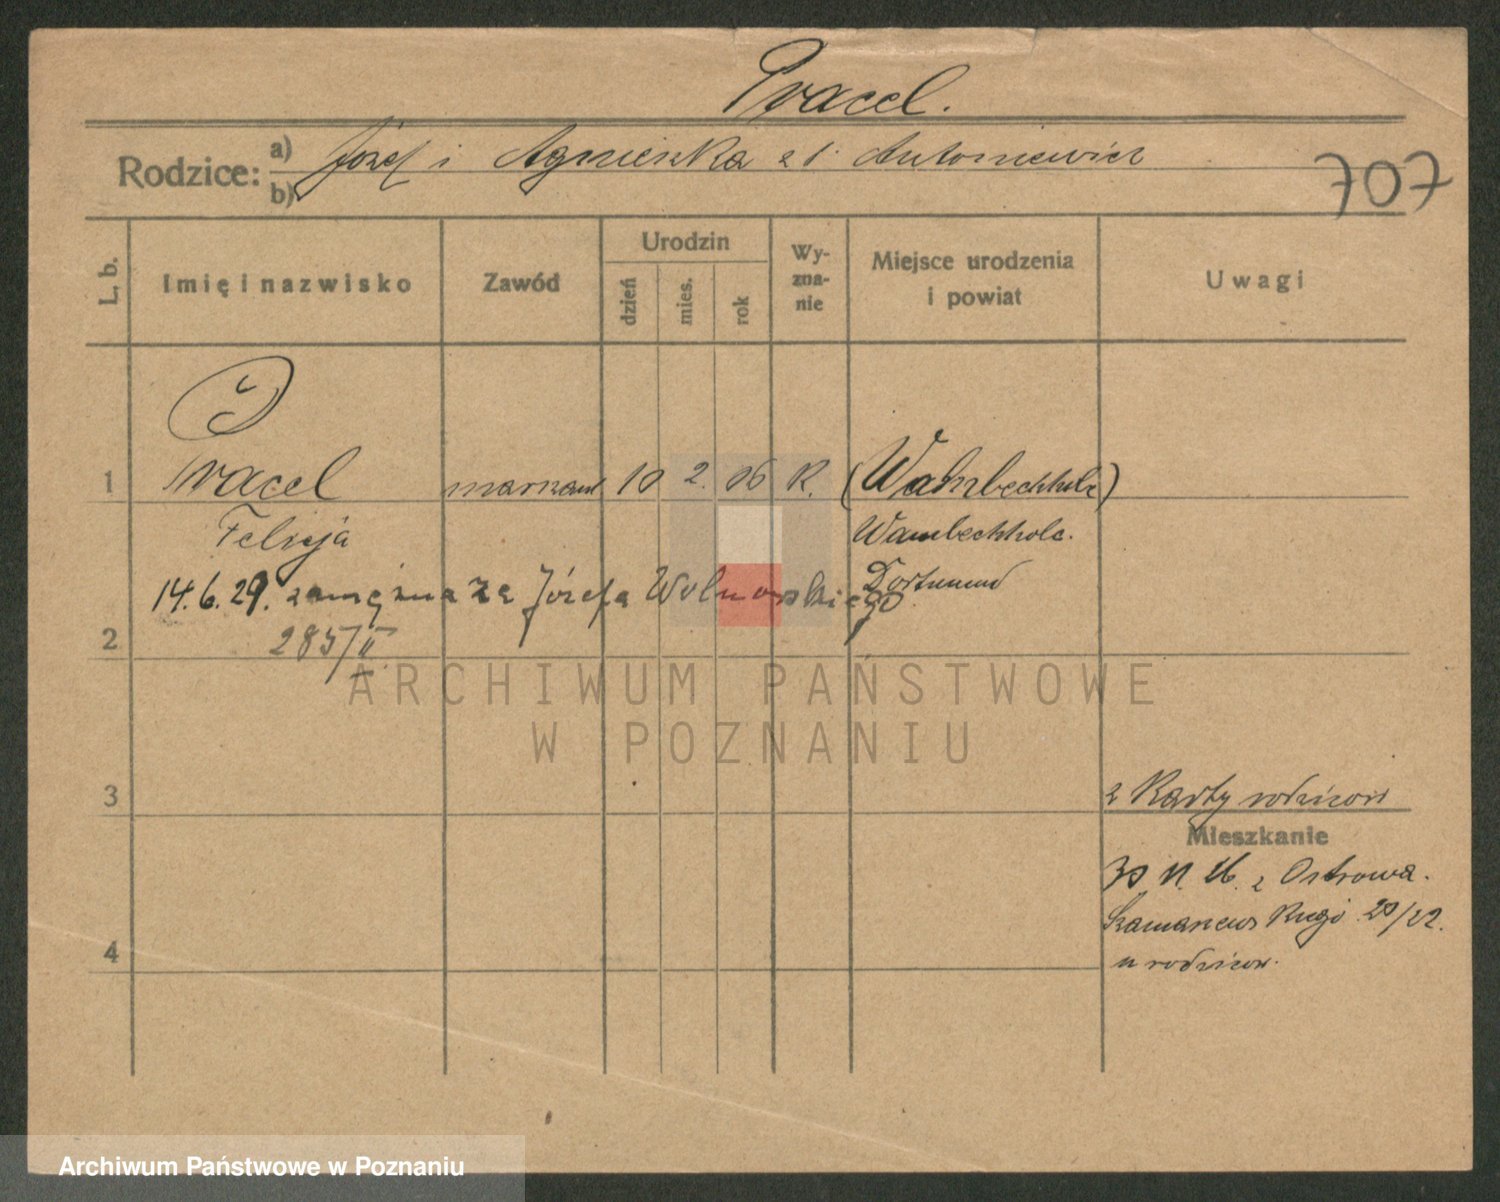 Pracel.
Rodzice: a) b) Józef i Agnieszka z d. Antoniewicz
707
L. b.
Imię i nazwisko
Zawód
Urodzin
dzień
mies.
rok
Wy-
zna-
nie
Miejsce urodzenia
i powiat
Uwagi
1 Pracel 10 2. 06 R. (Wambechholz)
Felicja
Wambechholc.
Dortmund
14. 6. 29. zamężna za Józefa Wolnowskiego
2
285/II
3
z Karty rodziców
Mieszkanie
30 11. 26. z Ostrowa.
20/22.
4
u rodziców.
ARCHIWUM PAŃSTWOWE
W POZNANIU
Archiwum Państwowe w Poznaniu